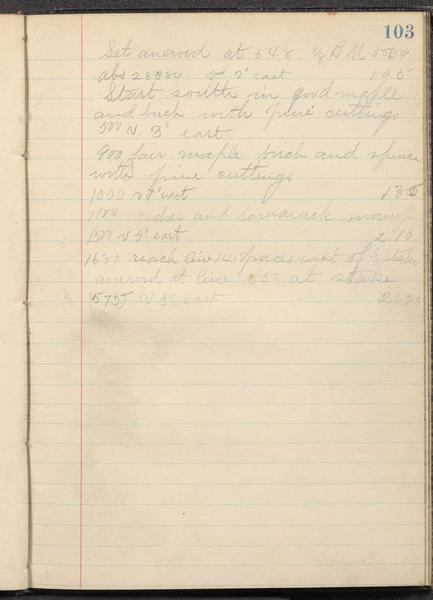 103
Set aneroid at 548 B M
abs 28880 v 2° east 1.05
Start south in good maple
and birch with pine cuttings
500 v 3° east
900 fair maple birch and spruce
with pine cuttings
1000 v east 1 30
1100 cedar and tamarack swamp
1500 v 5° east 2.10
1680 reach line 14 paces east of stake
aneroid at line 550 at stake
575 v 3° east